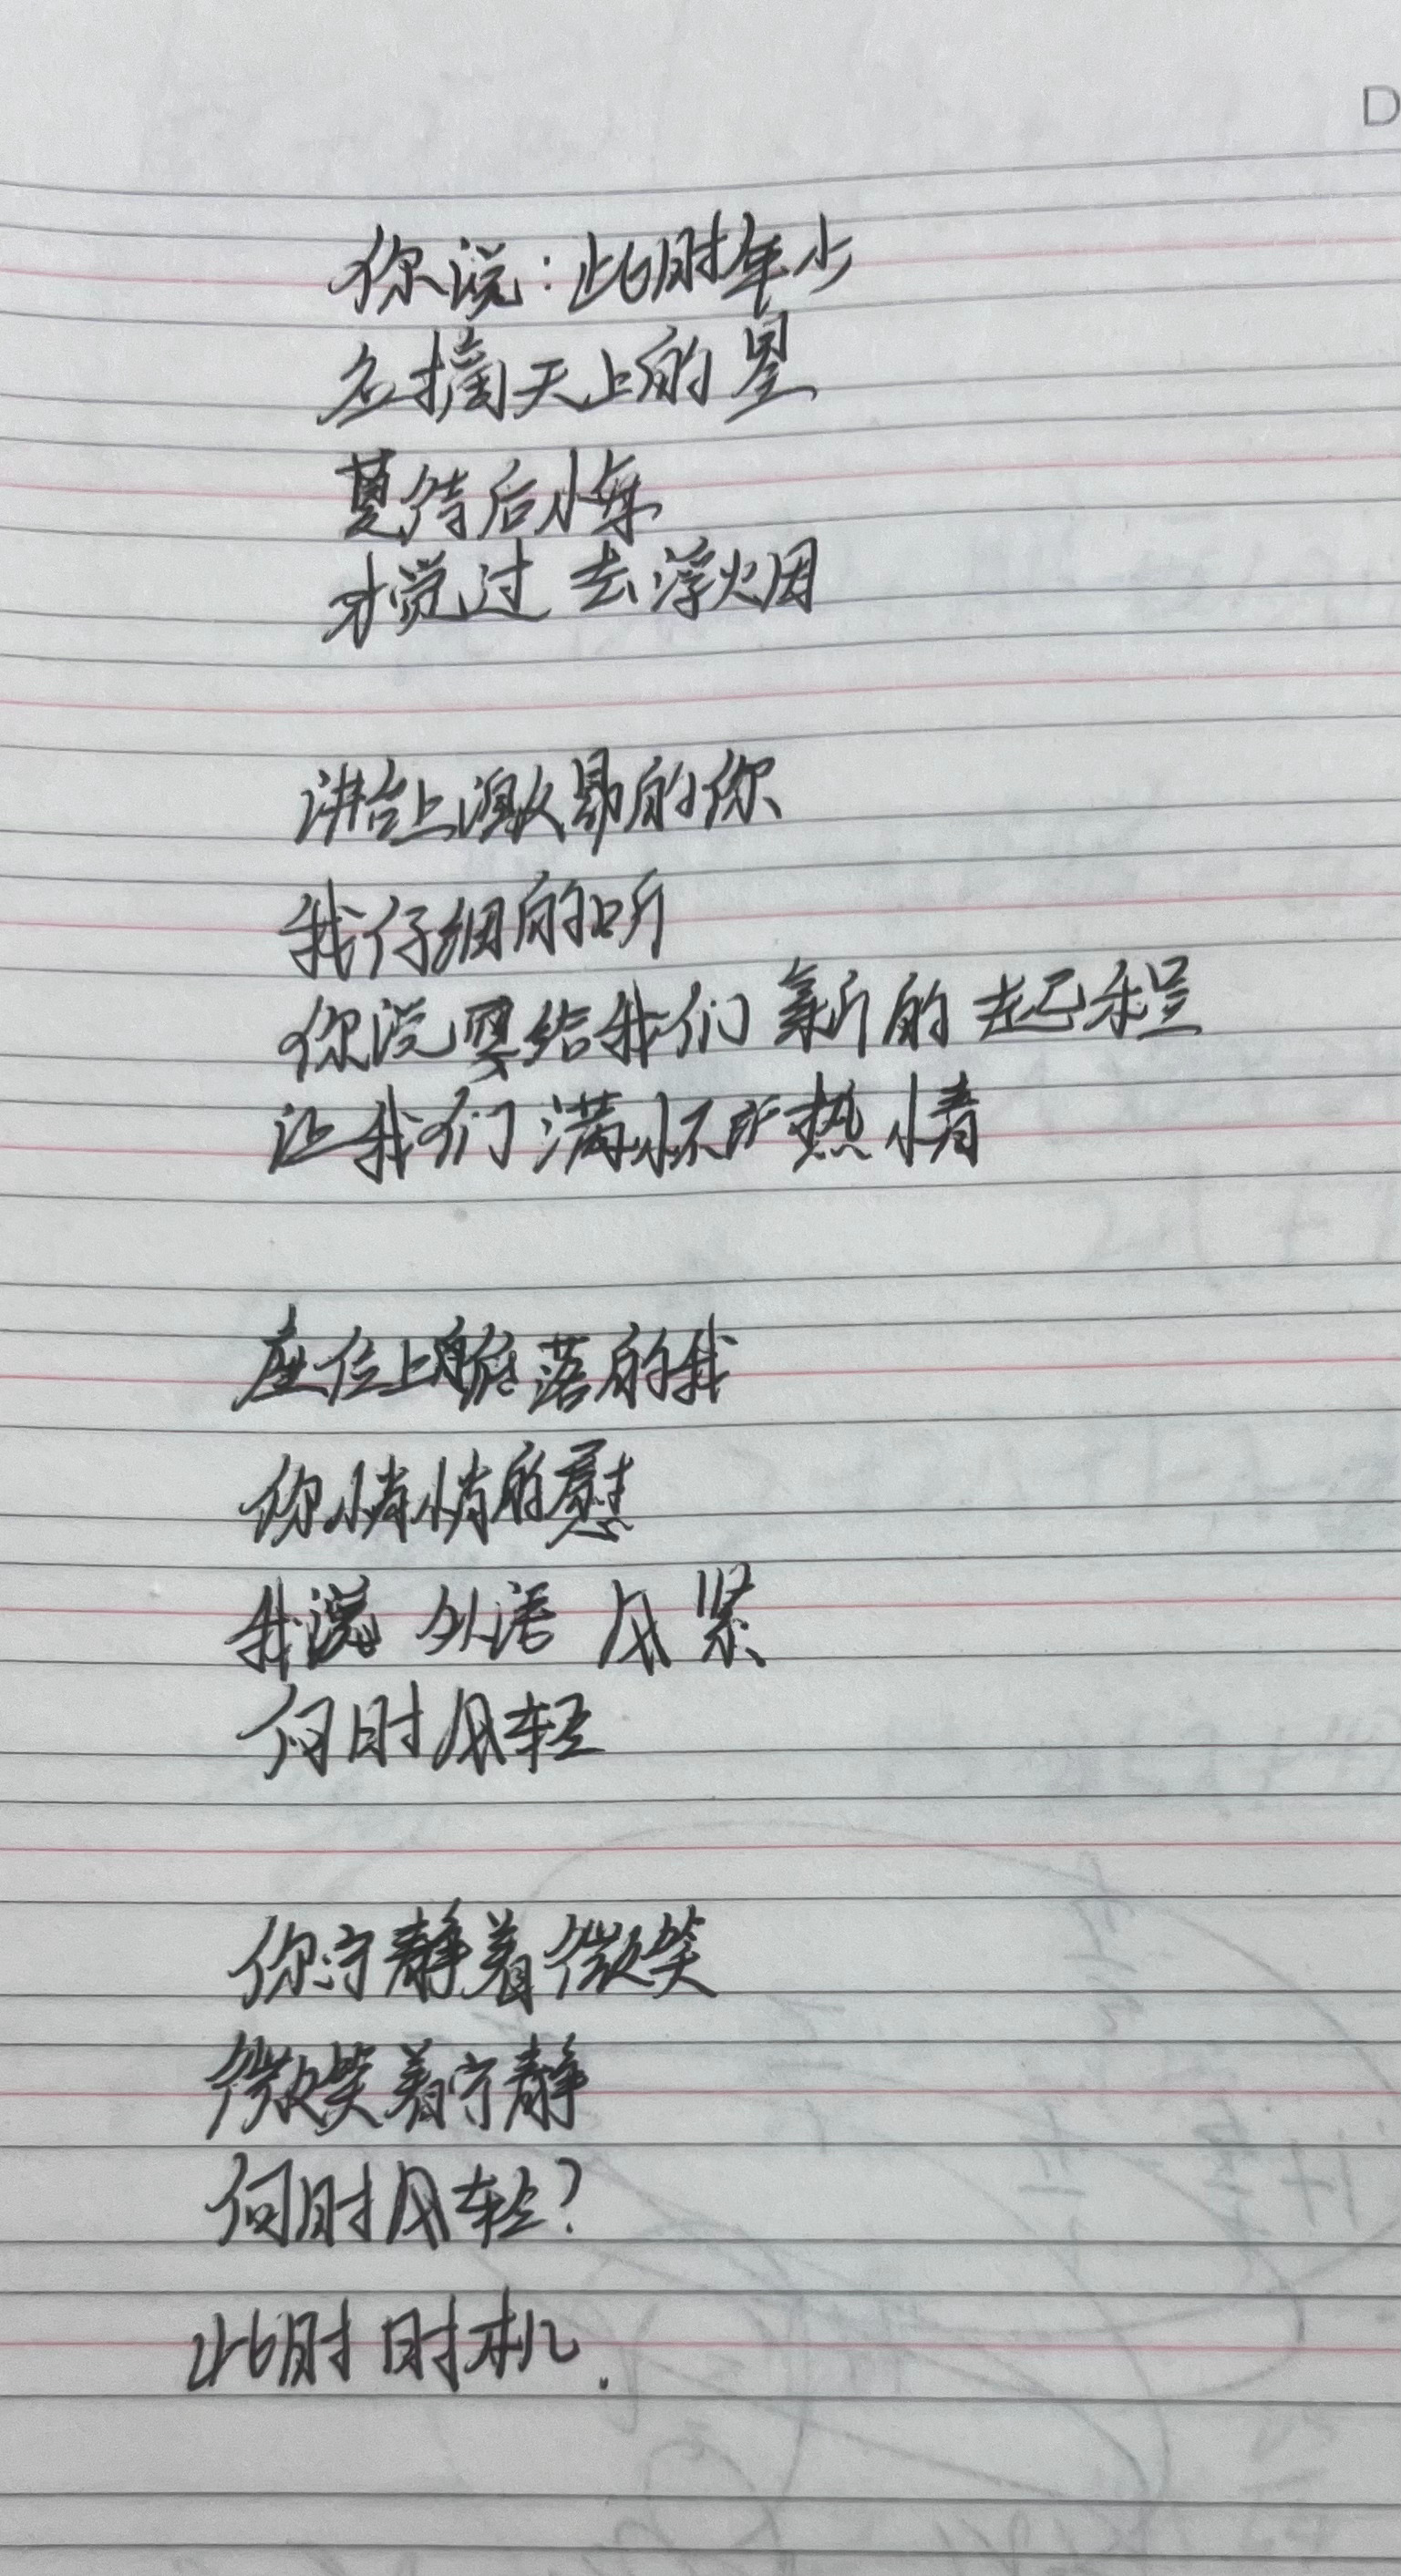 D
你说：此时年少
去摘天上的星
莫待后悔
才觉过去浮烟
讲台上激昂的你
我仔细的听
你说要给我们新的起程
让我们满怀热情
座位上低落的我
你悄悄的慰
我说 外语 风紧
何时风轻
你宁静着微笑
微笑着宁静
何时风轻？
此时时机.